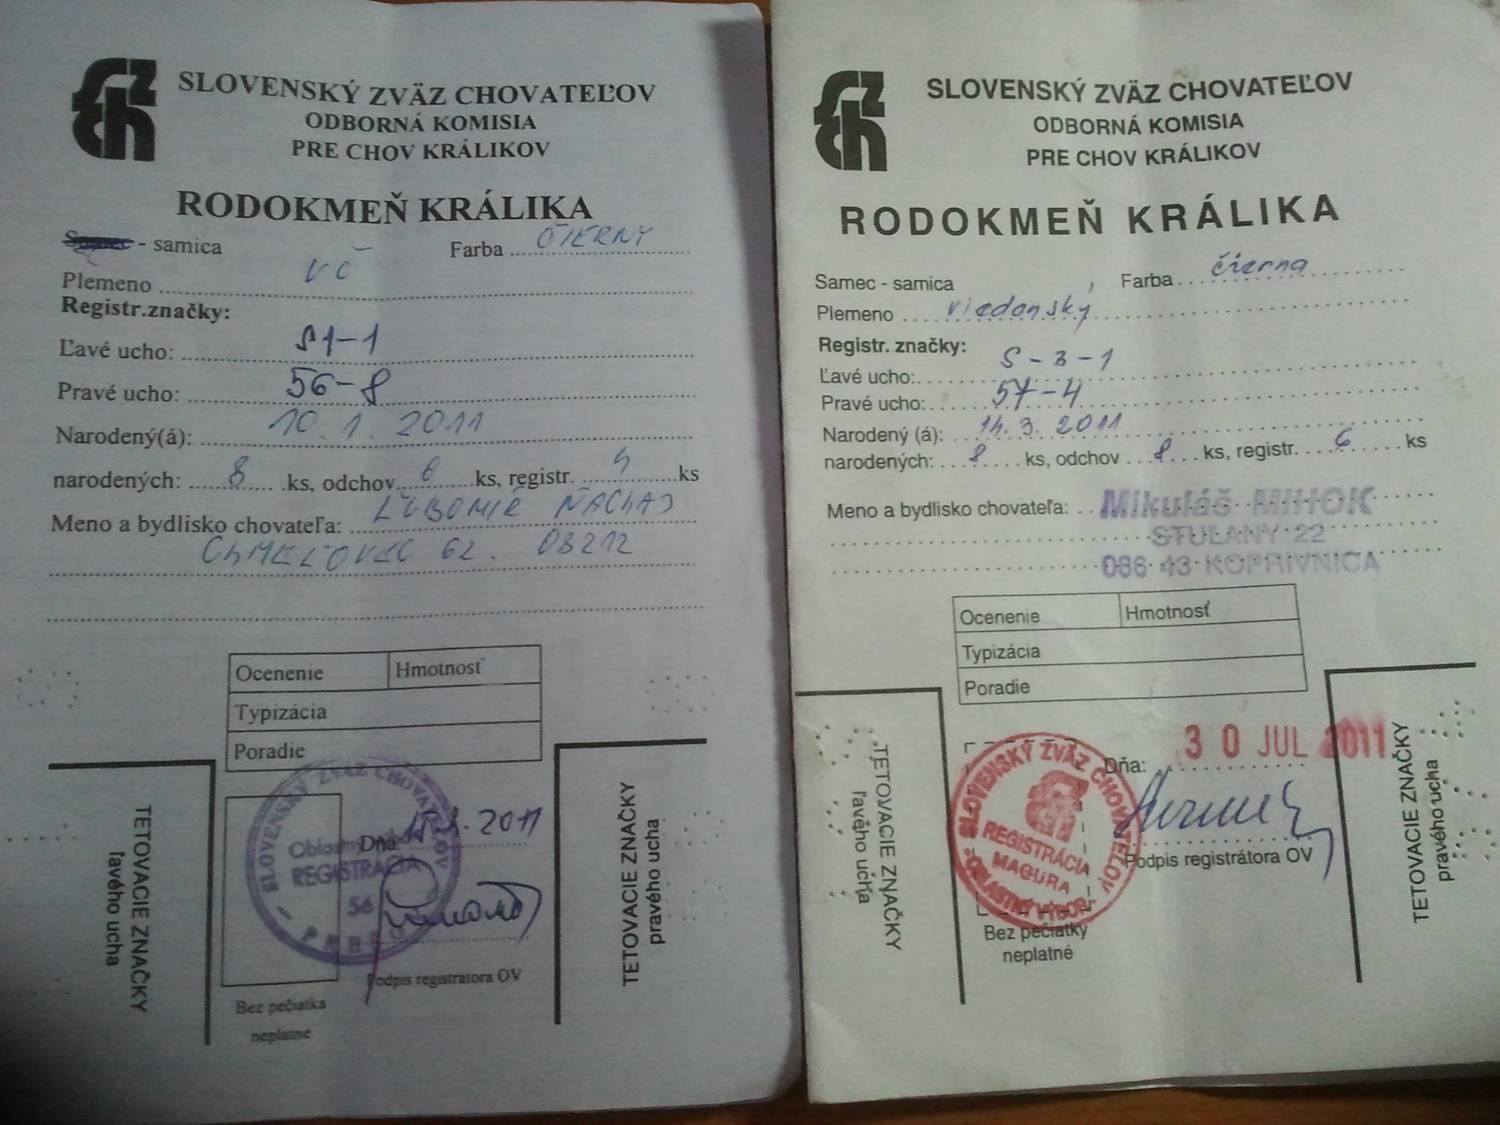 SLOVENSKÝ ZVÄZ CHOVATEĽOV
ODBORNÁ KOMISIA
PRE CHOV KRÁLIKOV
RODOKMEŇ KRÁLIKA
- samica Farba ČIERNY
Plemeno VČ
Registr.značky:
Ľavé ucho: S1-1
Pravé ucho: 56-8
Narodený(á): 10.1.2011
narodených: 8 ks, odchov 6 ks, registr. ks
Meno a bydlisko chovateľa: ĽUBOMÍR
CHMEĽOVEC 62. 08212
Ocenenie Hmotnosť
Typizácia
Poradie
TETOVACIE ZNAČKY
ľavého ucha
SLOVENSKÝ ZVÄZ CHOVATEĽOV
REGISTRÁCIA
56
Dňa: 2011
Podpis registrátora OV
Bez pečiatka
neplatne
TETOVACIE ZNAČKY
pravého ucha
SLOVENSKÝ ZVÄZ CHOVATEĽOV
ODBORNÁ KOMISIA
PRE CHOV KRÁLIKOV
RODOKMEŇ KRÁLIKA
Samec - samica Farba čierna
Plemeno viedenský
Registr. značky:
Ľavé ucho: S-3-1
Pravé ucho: 57-4
Narodený (á): 14.3.2011
narodených: 8 ks, odchov 8 ks, registr. 6 ks
Meno a bydlisko chovateľa: Mikuláš MIHOK
STUĽANY 22
086 43 KOPRIVNICA
Ocenenie Hmotnosť
Typizácia
Poradie
TETOVACIE ZNAČKY
ľavého ucha
SLOVENSKÝ ZVÄZ CHOVATEĽOV
REGISTRÁCIA
MAGURA
OBLASTNÝ VÝBOR
Dňa: 30 JUL 2011
Podpis registrátora OV
Bez pečiatky
neplatné
TETOVACIE ZNAČKY
pravého ucha